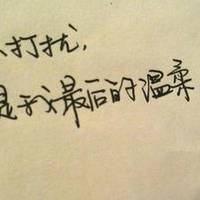 打扰,
是我最后的温柔